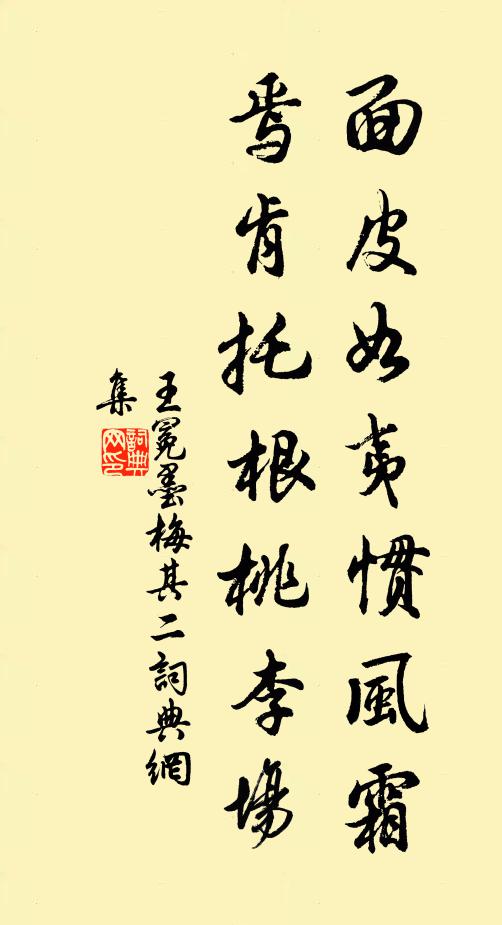 面皮如夷慣風霜
焉肯托根桃李場
王冕墨梅其二詞典網
集
詞典
网印